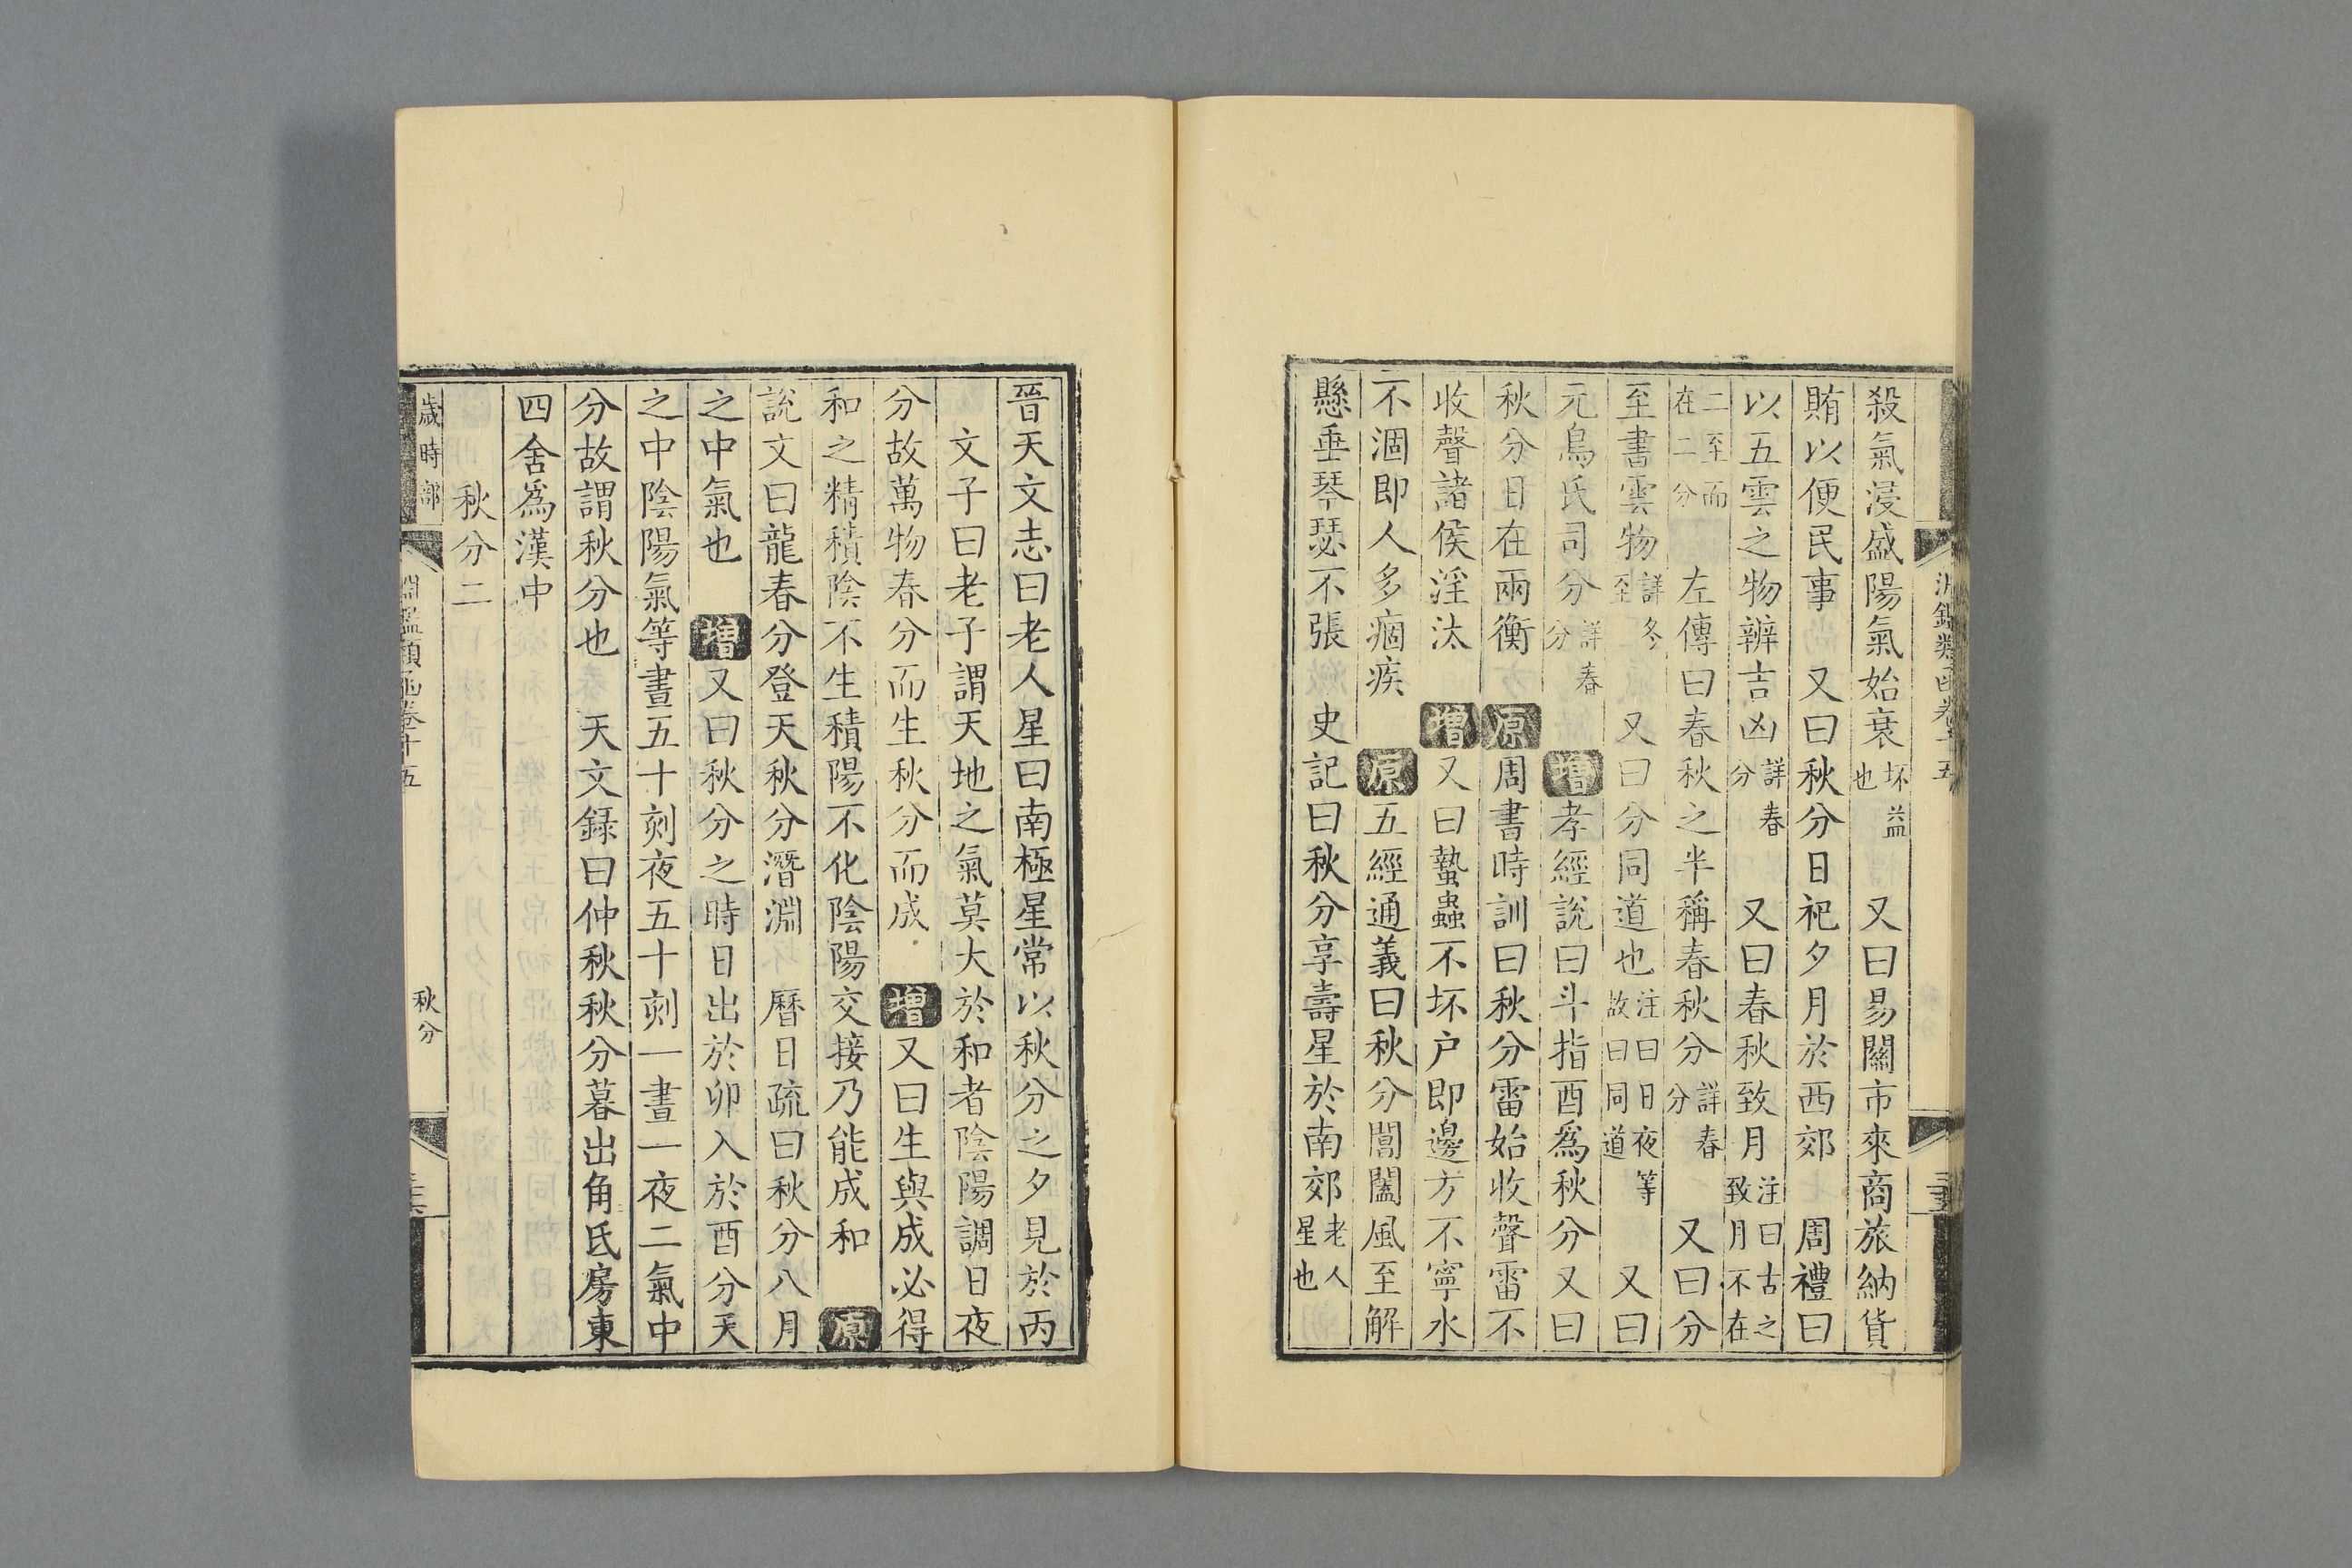 殺氣浸盛陽氣始衰坏益也 又曰易關市來商旅納貨
賄以便民事 又曰秋分日祀夕月於西郊 周禮曰
以五雲之物辨吉凶詳春分 又曰春秋致月注曰古之致月不在
二至而在二分 左傳曰春秋之半稱春秋分詳春分 又曰分
至書雲物詳冬至 又曰分同道也注曰日夜等故曰同道 又曰
元鳥氏司分詳春分 增孝經說曰斗指酉爲秋分又曰
秋分日在兩衡 原周書時訓曰秋分雷始收聲雷不
收聲諸侯淫汰 增又曰蟄蟲不坏户即邊方不寧水
不涸即人多痼疾 原五經通義曰秋分閶闔風至解
懸垂琴瑟不張 史記曰秋分享壽星於南郊老人星也
晉天文志曰老人星曰南極星常以秋分之夕見於丙
文子曰老子謂天地之氣莫大於和者陰陽調日夜
分故萬物春分而生秋分而成 增又曰生與成必得
和之精積陰不生積陽不化陰陽交接乃能成和 原
說文曰龍春分登天秋分潛淵 曆日疏曰秋分八月
之中氣也 增又曰秋分之時日出於卯入於酉分天
之中陰陽氣等晝五十刻夜五十刻一晝一夜二氣中
分故謂秋分也 天文錄曰仲秋秋分暮出角氐房東
四舍爲漢中
秋分二
歲時部
淵鑑類函卷十五
秋分